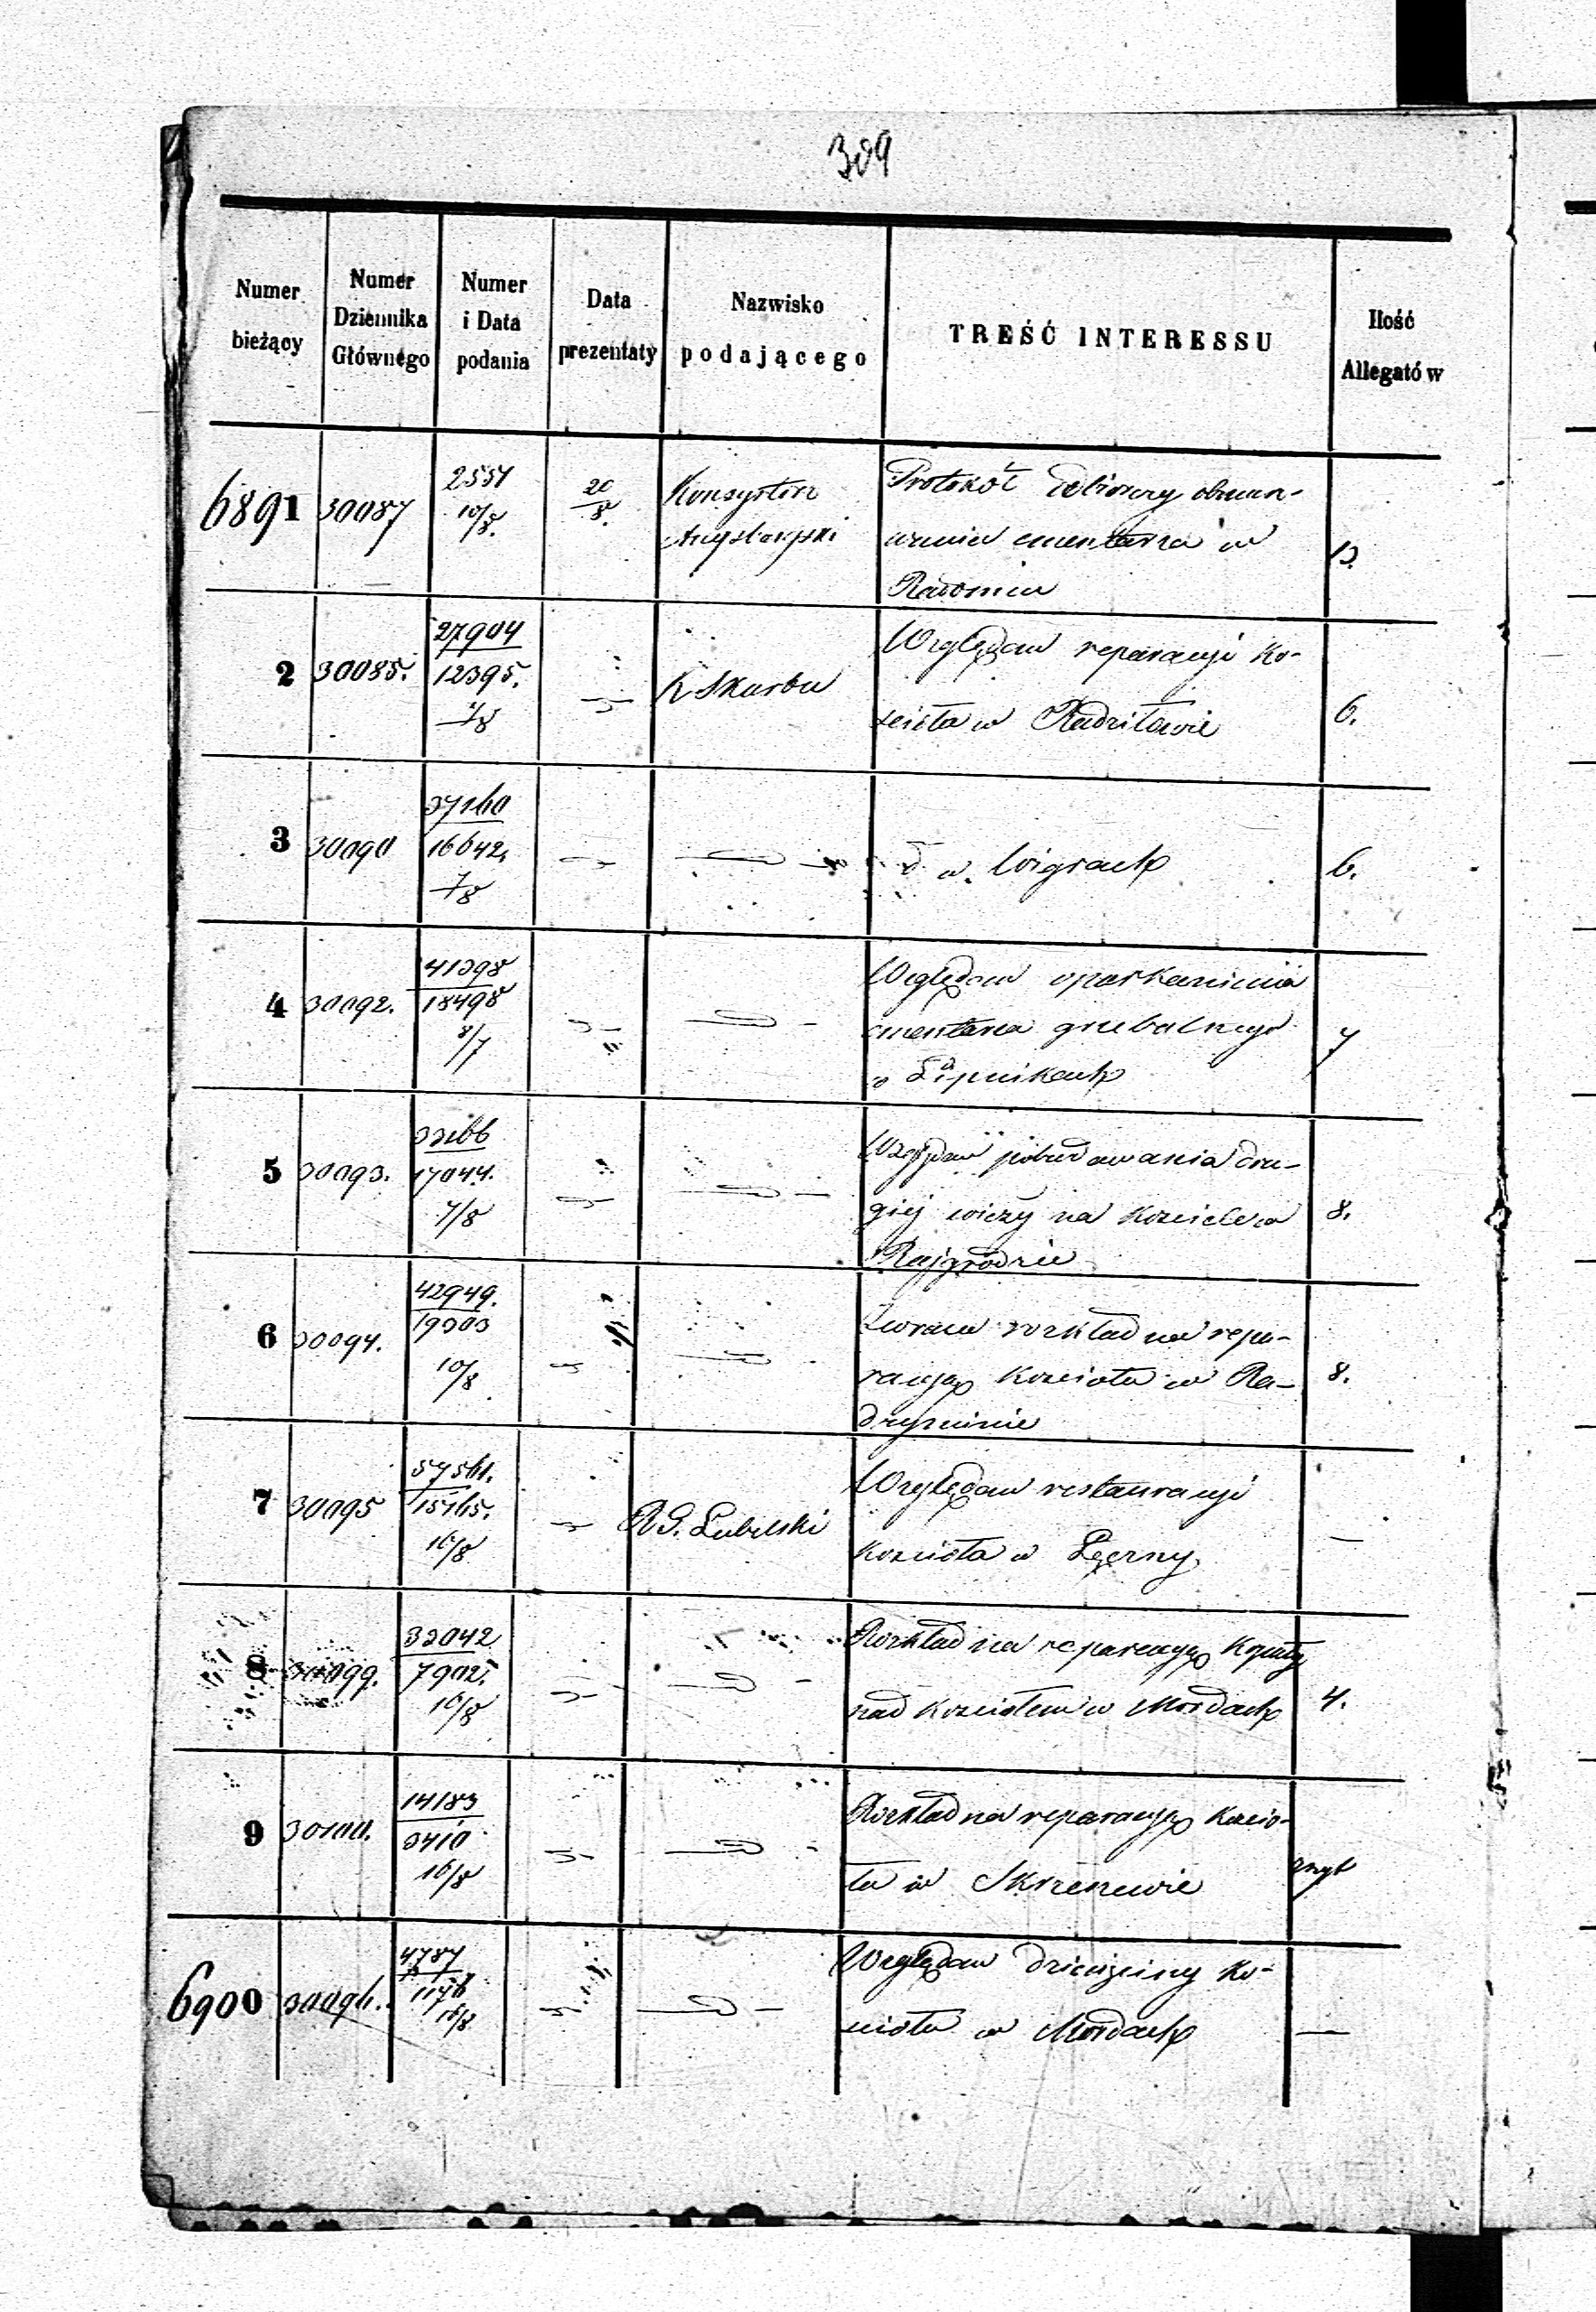 309
Numer bieżący
Numer Dziennika Głównego
Numer i Data podania
Data prezentaty
Nazwisko podającego
TREŚĆ INTERESSU
Ilość Allegatów
6891 30087
10/8.
20/8.
Konsystorz
Augstowski
Protokół odbiorczy obmur-
cmentarza w
13.
2 30085.
27904
12395.
7/8
K Skarbu
Względem reparacyi Ko-
ścioła w Radziłowie
6.
3 30090
37160
16642.
7/8
do w Wigrach
6.
4 30092.
41398
18498
8/7
Względem oparkanienia
cmentarza grzebalnego
w Lipnikach
7
5 30093.
33166
17044.
7/8
Względem pobudowania dru-
giej wieży na Kościele w
Rajgrodzie
8.
6 30094.
42949.
19303
10/8
Zwraca rozkład na repa-
racyę Kościoła w Ra-
dzyminie
8.
7 30095
57561.
15165.
16/8
RG. Lubelski
Względem restauracyi
Kościoła w
—
8 30099.
32042
7902.
16/8
Rozkład na reparacyę Kopuły
nad Kościołem w Mordach
4.
9 30100.
14183
3410
16/8
Rozkład na reparacyę Kościo-
ła w
zszyt
6900 30096.
4787
1176
16/8
Względem dzwonnicy Ko-
ścioła w Mordach
—